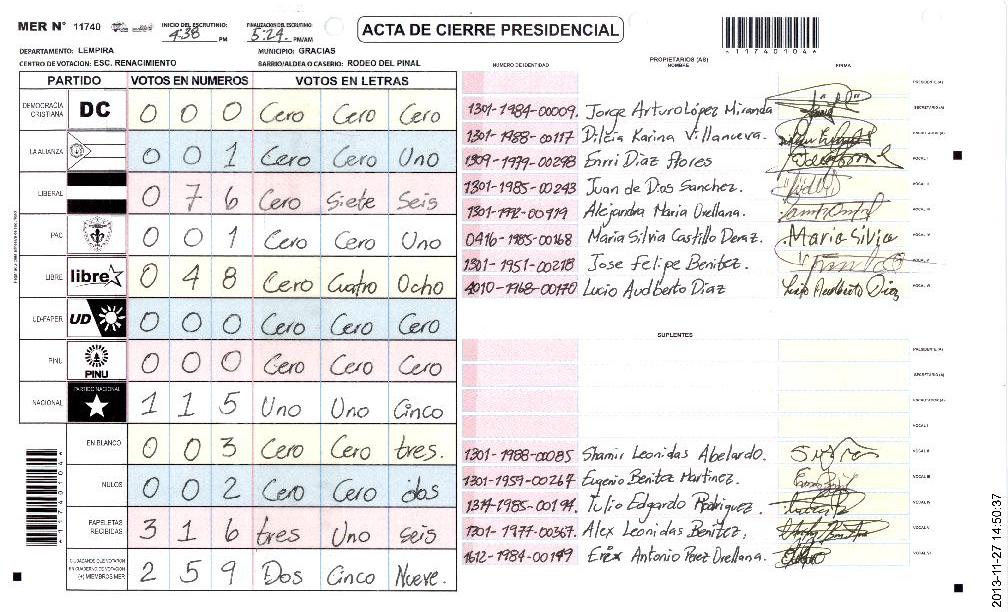 MER N° 11740 INICIO DEL ESCRUTINIO: 4:38 PM FINALIZACION DEL ESCRUTINIO: 5:29 PM/AM ACTA DE CIERRE PRESIDENCIAL *117401041*
DEPARTAMENTO: LEMPIRA MUNICIPIO: GRACIAS
CENTRO DE VOTACION: ESC. RENACIMIENTO BARRIO/ALDEA O CASERIO: RODEO DEL PINAL
PARTIDO VOTOS EN NUMEROS VOTOS EN LETRAS
DEMOCRACIA CRISTIANA DC 0 0 0 Cero Cero Cero
LA ALIANZA 0 0 1 Cero Cero Uno
LIBERAL 0 7 6 Cero Siete Seis
PAC 0 0 1 Cero Cero Uno
LIBRE libre 0 4 8 Cero Cuatro Ocho
UD-FAPER UD 0 0 0 Cero Cero Cero
PINU PINU 0 0 0 Cero Cero Cero
NACIONAL PARTIDO NACIONAL 1 1 5 Uno Uno Cinco
EN BLANCO 0 0 3 Cero Cero tres.
NULOS 0 0 2 Cero Cero dos
PAPELETAS RECIBIDAS 3 1 6 tres Uno seis
(+) MIEMBROS MER 2 5 9 Dos Cinco Nueve.
PROPIETARIOS (AS)
NUMERO DE IDENTIDAD NOMBRE FIRMA
PRESIDENTE (A)
1301-1984-00009. Jorge Arturo López Miranda SECRETARIO (A)
1301-1988-00117 Dilcia Karina Villanueva.
1309-1979-00298 Enri Diaz Flores VOCAL I
1301-1985-00293 Juan de Dios Sanchez. VOCAL II
Alejandra Maria Orellana. VOCAL III
0416-1985-00168 Maria Silvia Castillo Maria Silvia VOCAL IV
1301-1951-00218 Jose Felipe Benitez. VOCAL V
Lucio Audberto Diaz VOCAL VI
SUPLENTES
PRESIDENTE (A)
SECRETARIO (A)
VOCAL I
1301-1988-00085 Shamir Leonidas Abelardo. VOCAL II
1301-1959-00267 Eugenio Benitez Martinez. VOCAL III
Tulio Edgardo Rodriguez. VOCAL IV
1301-1977-00367. Alex Leonidas Benitez, VOCAL V
1612-1984-00199 Erix Antonio Perez Orellana. VOCAL VI
*117401041*
2013-11-27 14:50:37